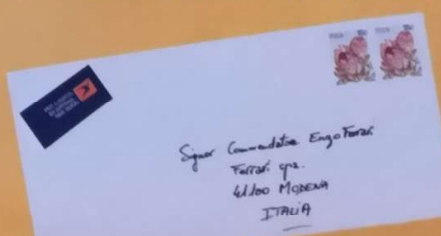 RSA 15c RSA 15c
PER LUGPOS
BY AIRMAIL
PAR AVION
Signor Commendatore Enzo Ferrari
Ferrari spa.
41100 MODENA
ITALIA